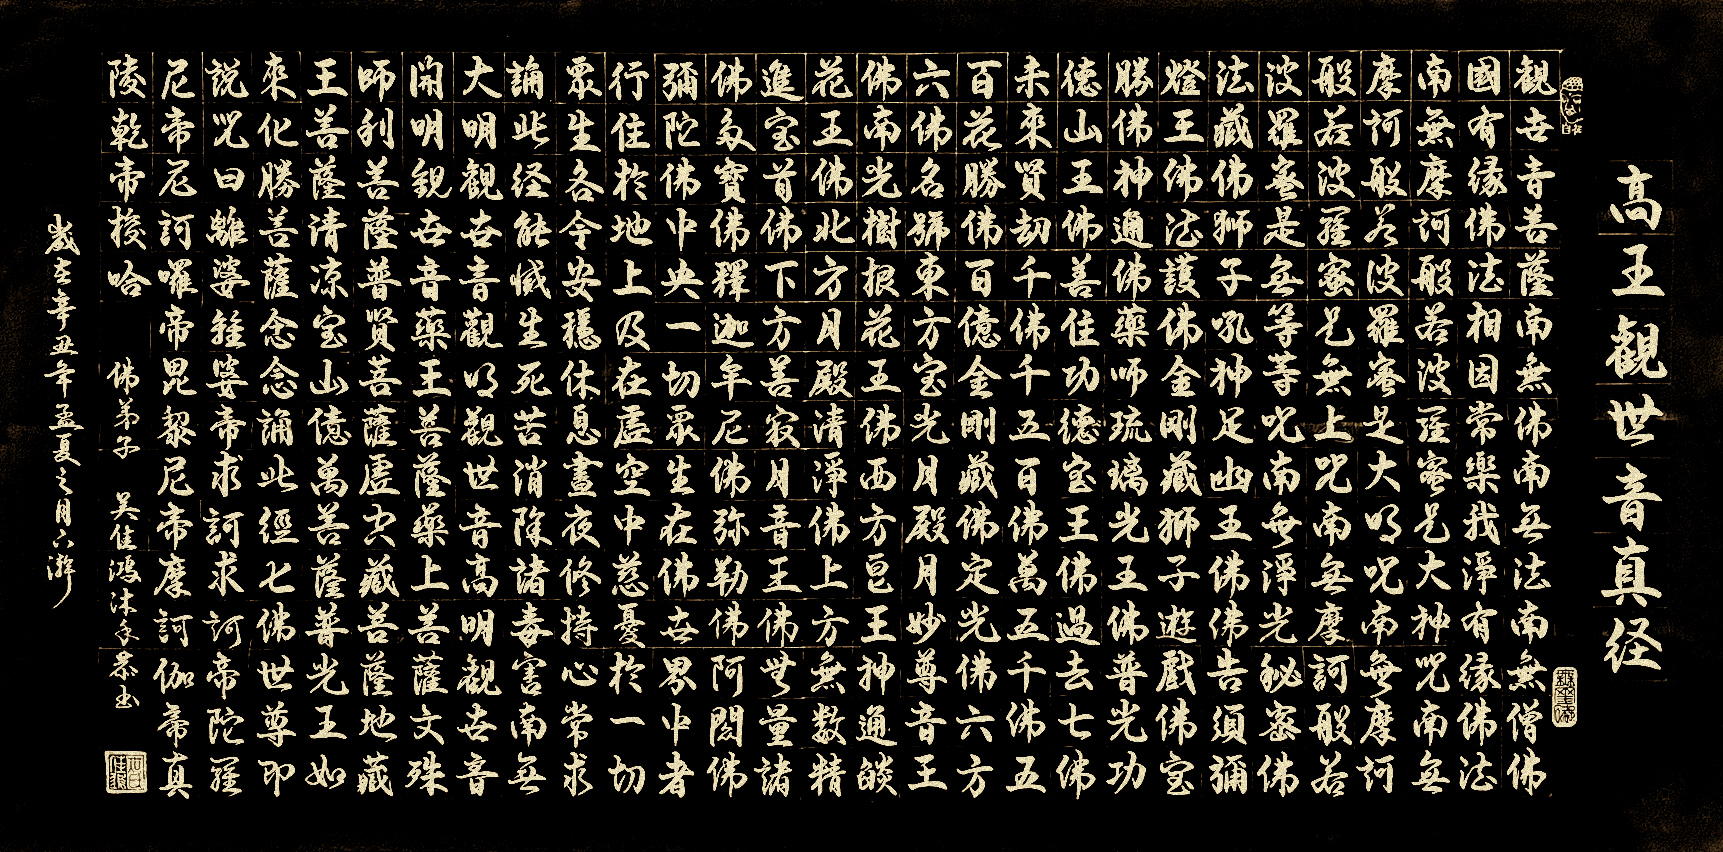 高王観世音真経
観世音菩薩南無佛南無法南無僧佛
國有緣佛法相因常樂我淨有緣佛法
南無摩訶般若波羅蜜是大神咒南無
摩訶般若波羅蜜是大明咒南無摩訶
般若波羅蜜是無上咒南無摩訶般若
波羅蜜是無等等咒南無淨光秘密佛
法藏佛狮子吼神足幽王佛佛告須彌
燈王佛法護佛金剛藏狮子遊戲佛宝
勝佛神通佛藥师琉璃光王佛普光功
德山王佛善住功德宝王佛過去七佛
未來賢劫千佛千五百佛萬五千佛五
百花勝佛百億金剛藏佛定光佛六方
六佛名號東方宝光月殿月妙尊音王
佛南光樹根花王佛西方皂王神通燄
花王佛北方月殿清淨佛上方無数精
進宝首佛下方善寂月音王佛無量諸
佛多寶佛釋迦牟尼佛弥勒佛阿閦佛
彌陀佛中央一切眾生在佛世界中者
行住於地上及在虛空中慈憂於一切
眾生各令安穩休息晝夜修持心常求
誦此经能滅生死苦消除諸毒害南無
大明觀世音觀明觀世音高明觀世音
開明觀世音藥王菩薩藥上菩薩文殊
师利菩薩普賢菩薩虛空藏菩薩地藏
王菩薩清凉宝山億萬菩薩普光王如
來化勝菩薩念念誦此經七佛世尊即
説咒曰離婆離婆帝求訶求訶帝陀羅
尼帝尼訶囉帝毘黎尼帝摩訶伽帝真
陵乾帝梭哈 佛弟子 吴佳鴻沐手恭书
歲在辛丑年孟夏之月